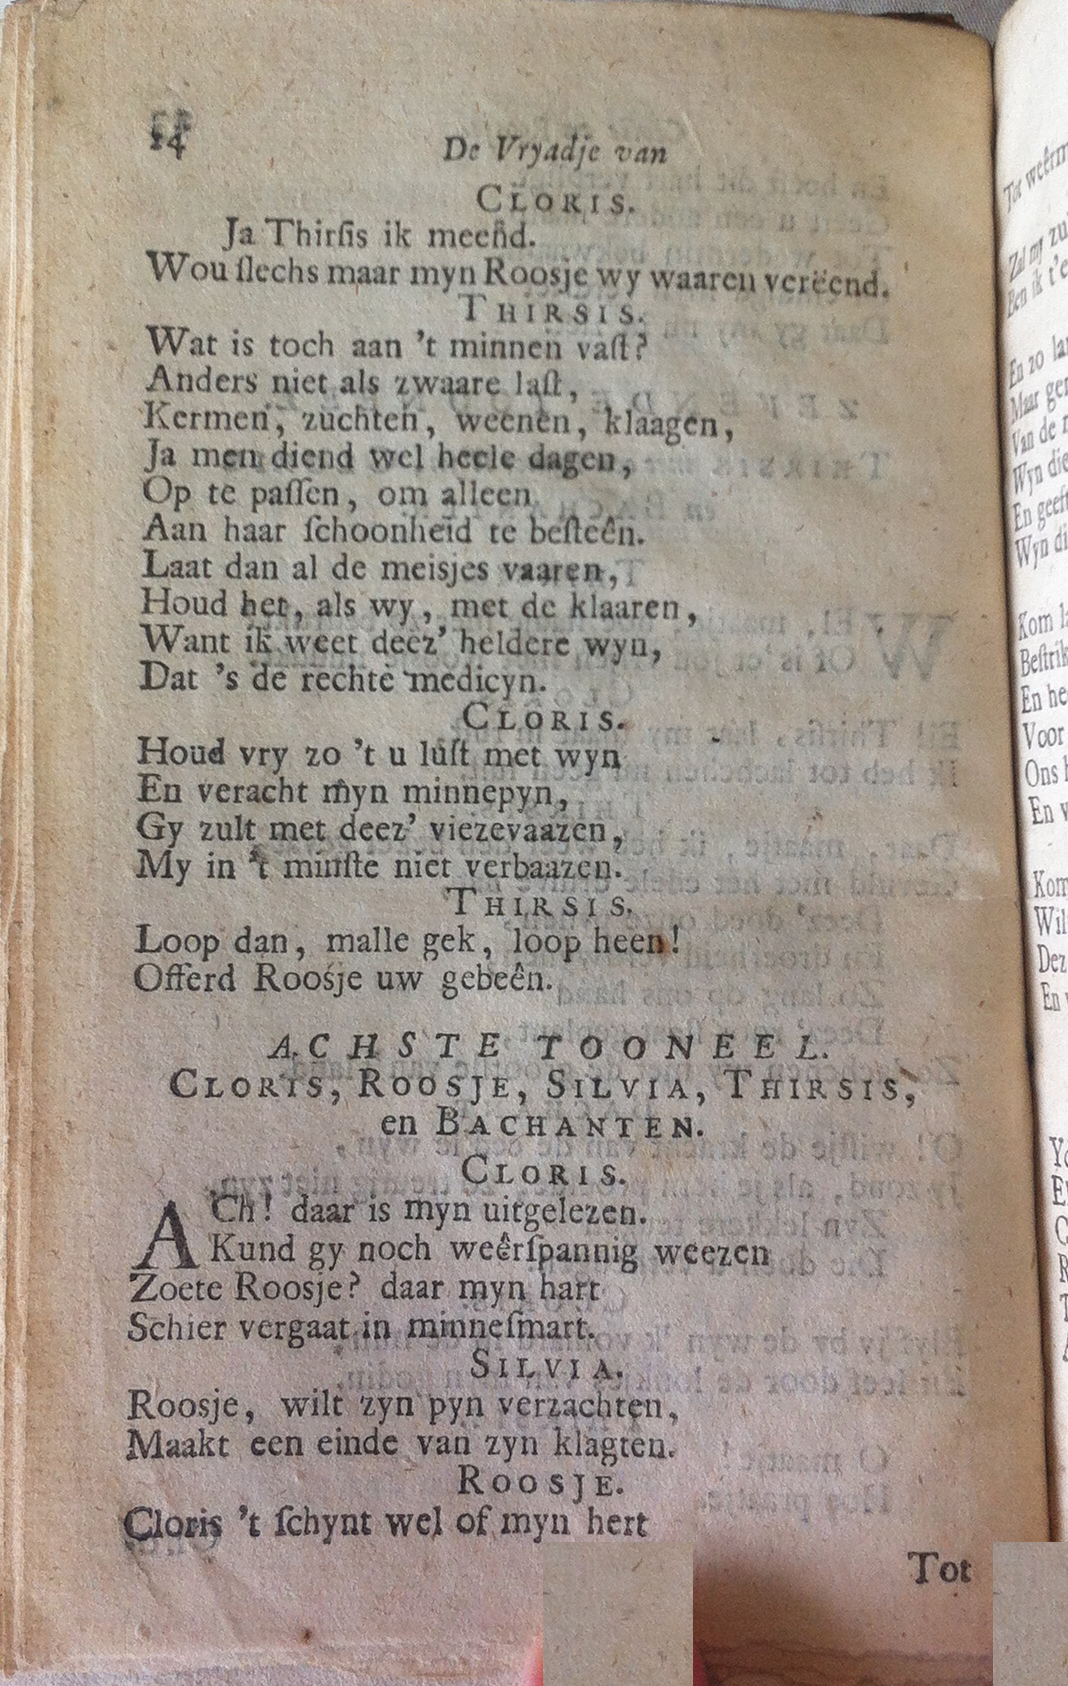 14
De Vryadje van
CLORIS.
Ja Thirſis ik meend̂.
Wou ſlechs maar myn Roosje wy waaren verëend.
THIRSIS.
Wat is toch aan 't minnen vaſt?
Anders niet als zwaare laſt,
Kermen, zuchten, weenen, klaagen,
Ja men diend wel heele dagen,
Op te paſſen, om alleen
Aan haar ſchoonheid te beſteên.
Laat dan al de meisjes vaaren,
Houd het, als wy, met de klaaren,
Want ik weet deez' heldere wyn,
Dat 's de rechte medicyn.
CLORIS.
Houd vry zo 't u luſt met wyn
En veracht myn minnepyn,
Gy zult met deez' viezevaazen,
My in 't minſte niet verbaazen.
THIRSIS.
Loop dan, malle gek, loop heen!
Offerd Roosje uw gebeên.
ACHSTE TOONEEL.
CLORIS, ROOSJE, SILVIA, THIRSIS,
en BACHANTEN.
CLORIS.
ACh! daar is myn uitgelezen.
Kund gy noch weêrſpannig weezen
Zoete Roosje? daar myn hart
Schier vergaat in minneſmart.
SILVIA.
Roosje, wilt zyn pyn verzachten,
Maakt een einde van zyn klagten.
ROOSJE.
Cloris 't ſchynt wel of myn hert
Tot
Tot
Zal my
Een ik
En zo
Maar
Van de
Wyn
En
Wyn
Kom
En
Voor
Ons
En
Kom
En